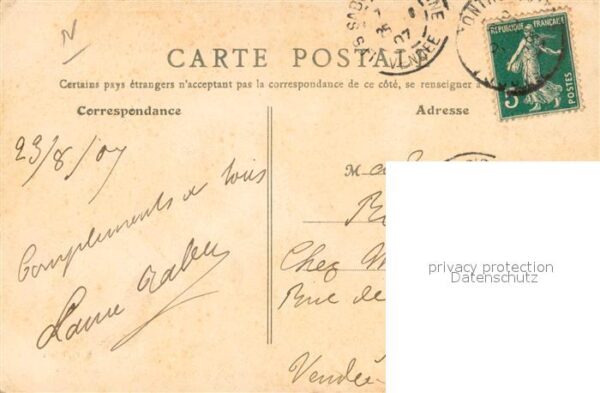 CARTE POSTALE
Certains pays étrangers n'acceptant pas la correspondance de ce côté, se renseigner à
Correspondance
Adresse
RÉPUBLIQUE FRANÇAISE
5
POSTES
VENDÉE
07
23/8/07
Compliments de tous
M
Chez M
Rue de
Vendée
privacy protection
Datenschutz